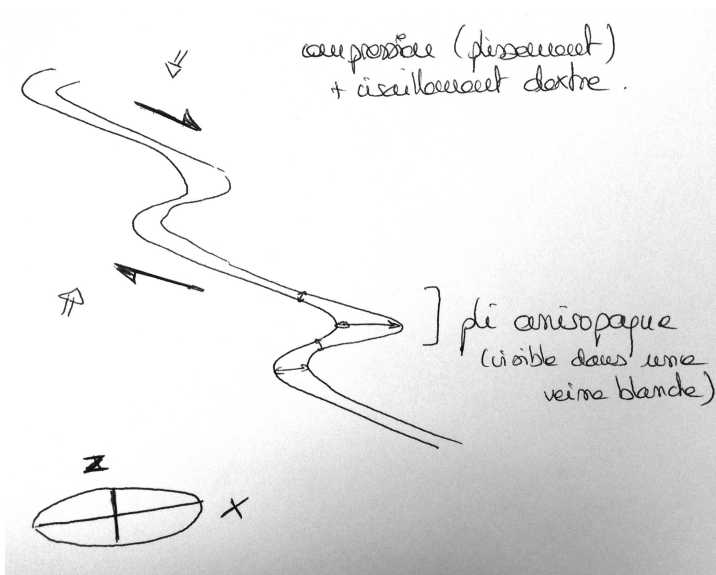 compression (plissement)
+ cisaillement dextre.
pli anisopaque
(visible dans une
veine blanche)
Z
X